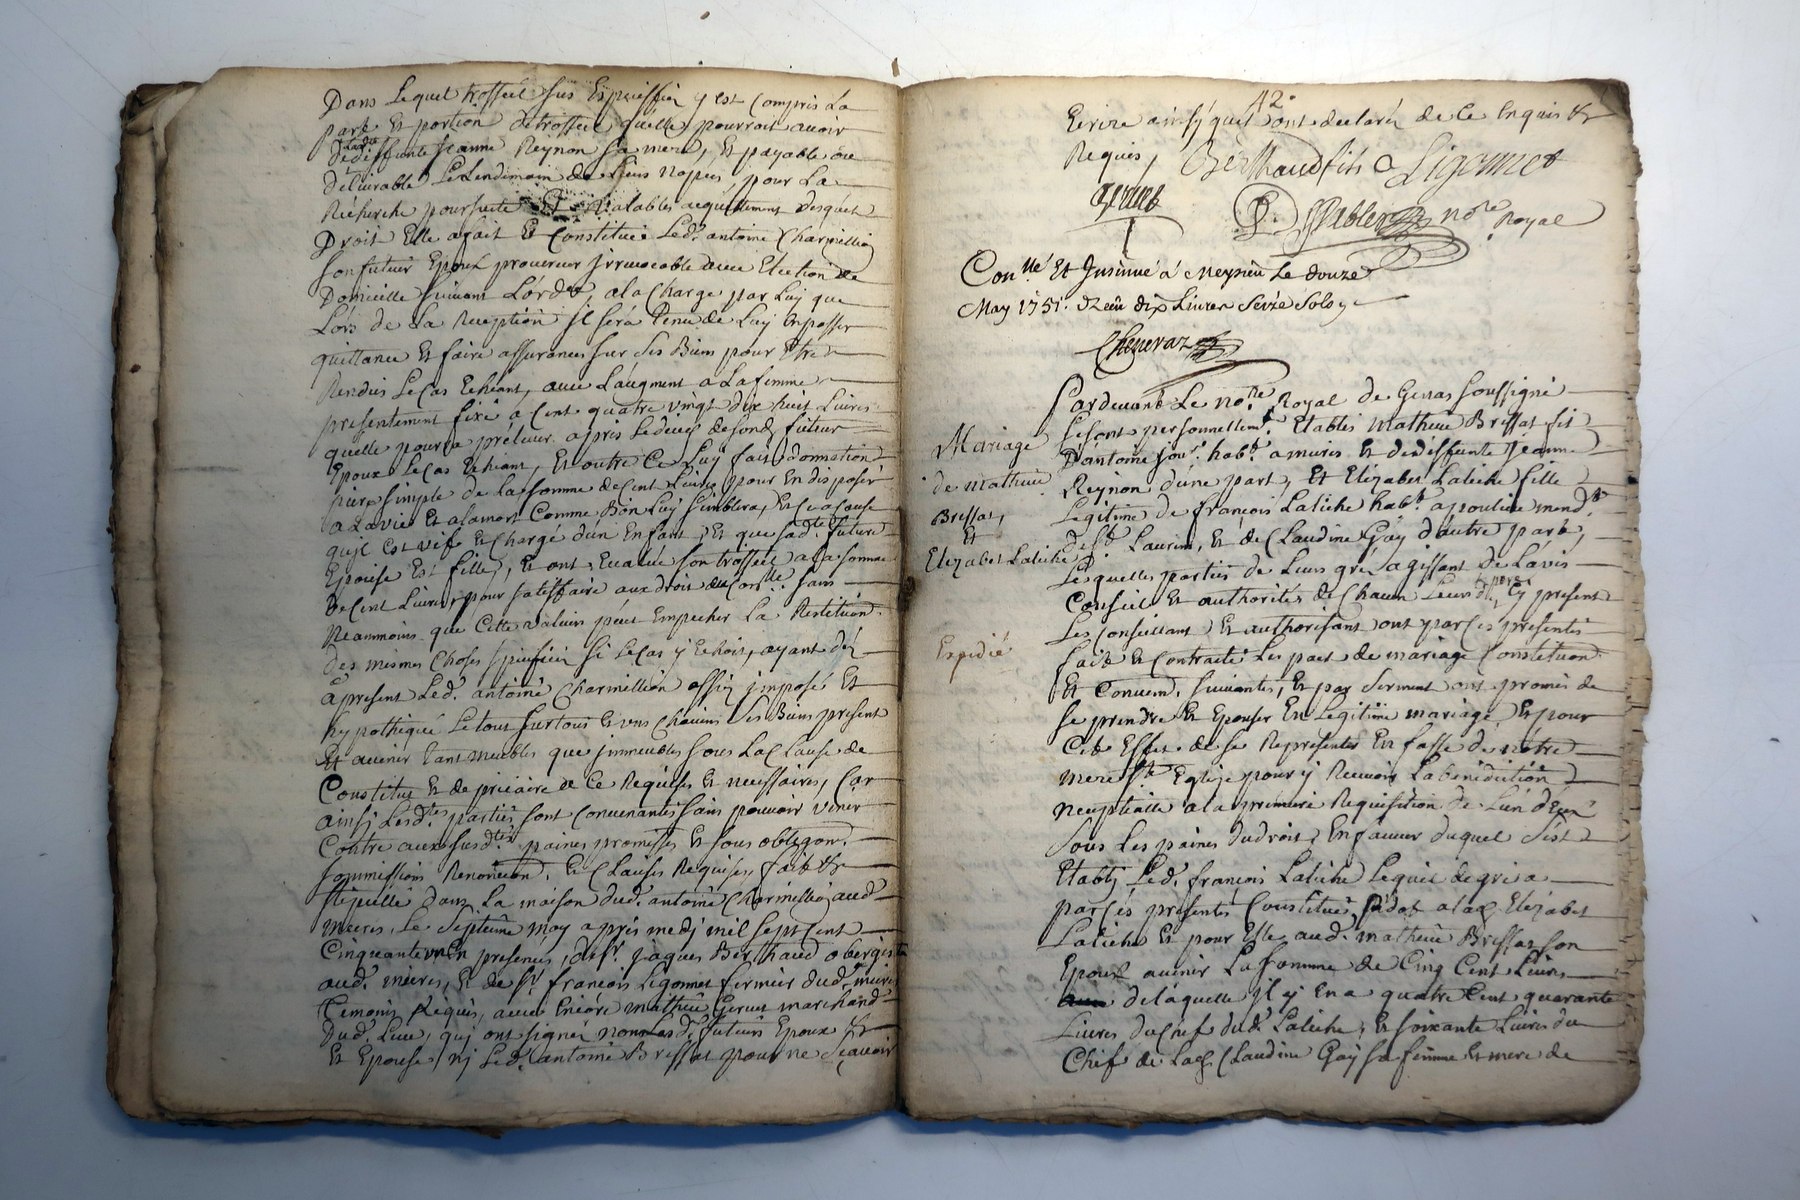 Dans Lequel trossell sus Expeciffier y est Compris La
part Et portion de trossel qu'elle pourroit avoir
De laditte deffunte Jeanne Reynon sa mere, Et payable ou
delivrable Le Lendemain de Leurs nopces, pour La
Recherche poursuitte Et valables acquittement desquels
Droit Elle a fait Et Constitué Led. antoine Charmillion
son futeur Epoux procureur jrrevocable avec Election de
Domicille suivant L'ordre, a la Charge par Luy que
Lors de La Reception jl sera tenu de Luy En passer
quittance Et faire assurances sur ses Biens pour Etre
Rendus Le Cas Echeant, avec L'augment a La femme
presentement fixé a Cent quatre vingt dix huit Livres
quelle pourra prélever apres Le deces de sond. futeur
Epoux Le Cas Echeant, Et outre Ce Luy fait donnation
pure simple de La somme de Cent Livres pour En disposer
a La vie Et a la mort Comme Bon Luy semblera, Et Ce a Cause
qu'jl est vef Et Chargé d'un Enfant, Et que sad.te future
Epouse Est fille, Et ont Evalué son trossel a La somme
de Cent Livres pour satisfaire aux droit du Con.lle sans
Neanmoins que Cette valeur peut Empecher La Restitution
des mesmes Choses speciffiées si Le Cas y Echoit, ayant dez
a present Led. antoine Charmillion affin jmposé Et
hypothequé Le tous surtous Et uns Chacuns ses Biens present
Et avenir tant meubles que jmmeubles sous La Clause de
Constitut Et de precaire de Ce Requises Et necessaires, Car
ainsi Lesd.tes parties sont Convenantes sans pouvoir venir
Contre aux susd.tes paines promesses Et sous obligaon.
sommissions Renonceon. Et Clauses Requises, fait &
stipullé dans La maison dud. antoine Charmillion aud.
mieres, Le septieme may apres medj mil sept Cent
Cinquante un En presences, de sr. jàques Berthaud obergiste
aud. mieres, Et de sr. françois Ligonnet fermier dud. mieres
temoins Requis, avec Encore Mathieu Gervet marchand
dud. Lieu, qui ont signé non Lesd. futeurs Epoux
Et Epouse, nj Led. antoine Brissat pour ne sçavoir
42.
Ecrire ainsy quil ont declaré de Ce Enquis &
Requis, Berthaud fils Ligonnet
gervet
No.re Royal
Con.llé Et Insinué á Meyzieu Le douze
May 1751. Receu dix Livres Seize Sols
Cheneraz
Pardevant Le no.re Royal de Genas soussigné
se sont personnellem.t Etablis Mathieu Brissat fils
D'antoine Jour. hab.t a mieres Et de deffunte Jeanne
Reynon d'une part, Et Elizabet Laliche fille
Legitime de françois Laliche hab.t a poulieu mend.t
de St. Laurent, Et de Claudine Gay d'autre part,
Mariage
de Mathieu
Brissat,
Et
Elizabet Laliche
Lesquelles parties de Leurs gré agissant de L'avis
Conseils Et authorités de Chacun Leursd. peres Cy present
Les Conseillant Et authorisant ont par Ces presentes
Expedié
fait Et Contracté Les pact de mariage Constitution
Et Conven. suivantes, Et par serment ont promis de
se prendre Et Epouser En Legitime mariage, Et pour
Cet Effet de se Representer En fasse de notre
mere S.te Eglize pour y Recevoir La benediction
neuptialle a la premiere Requisition de L'un d'Eux
sous Les paines du droit, En faveur duquel s'est
Etablj Led. françois Laliche Lequel de gré a
par Ces presentes Constitué En dot a lad. Elizabet
Laliche Et pour Elle aud. mathieu Brissat son
Epoux avenir La somme de Cinq Cent Livres
de láquelle jl y En a quatre Cent quarante
Livres du Chef dud. Laliche, Et soixante Livres du
Chef de Lad. Claudine Gay sa femme Et mere de